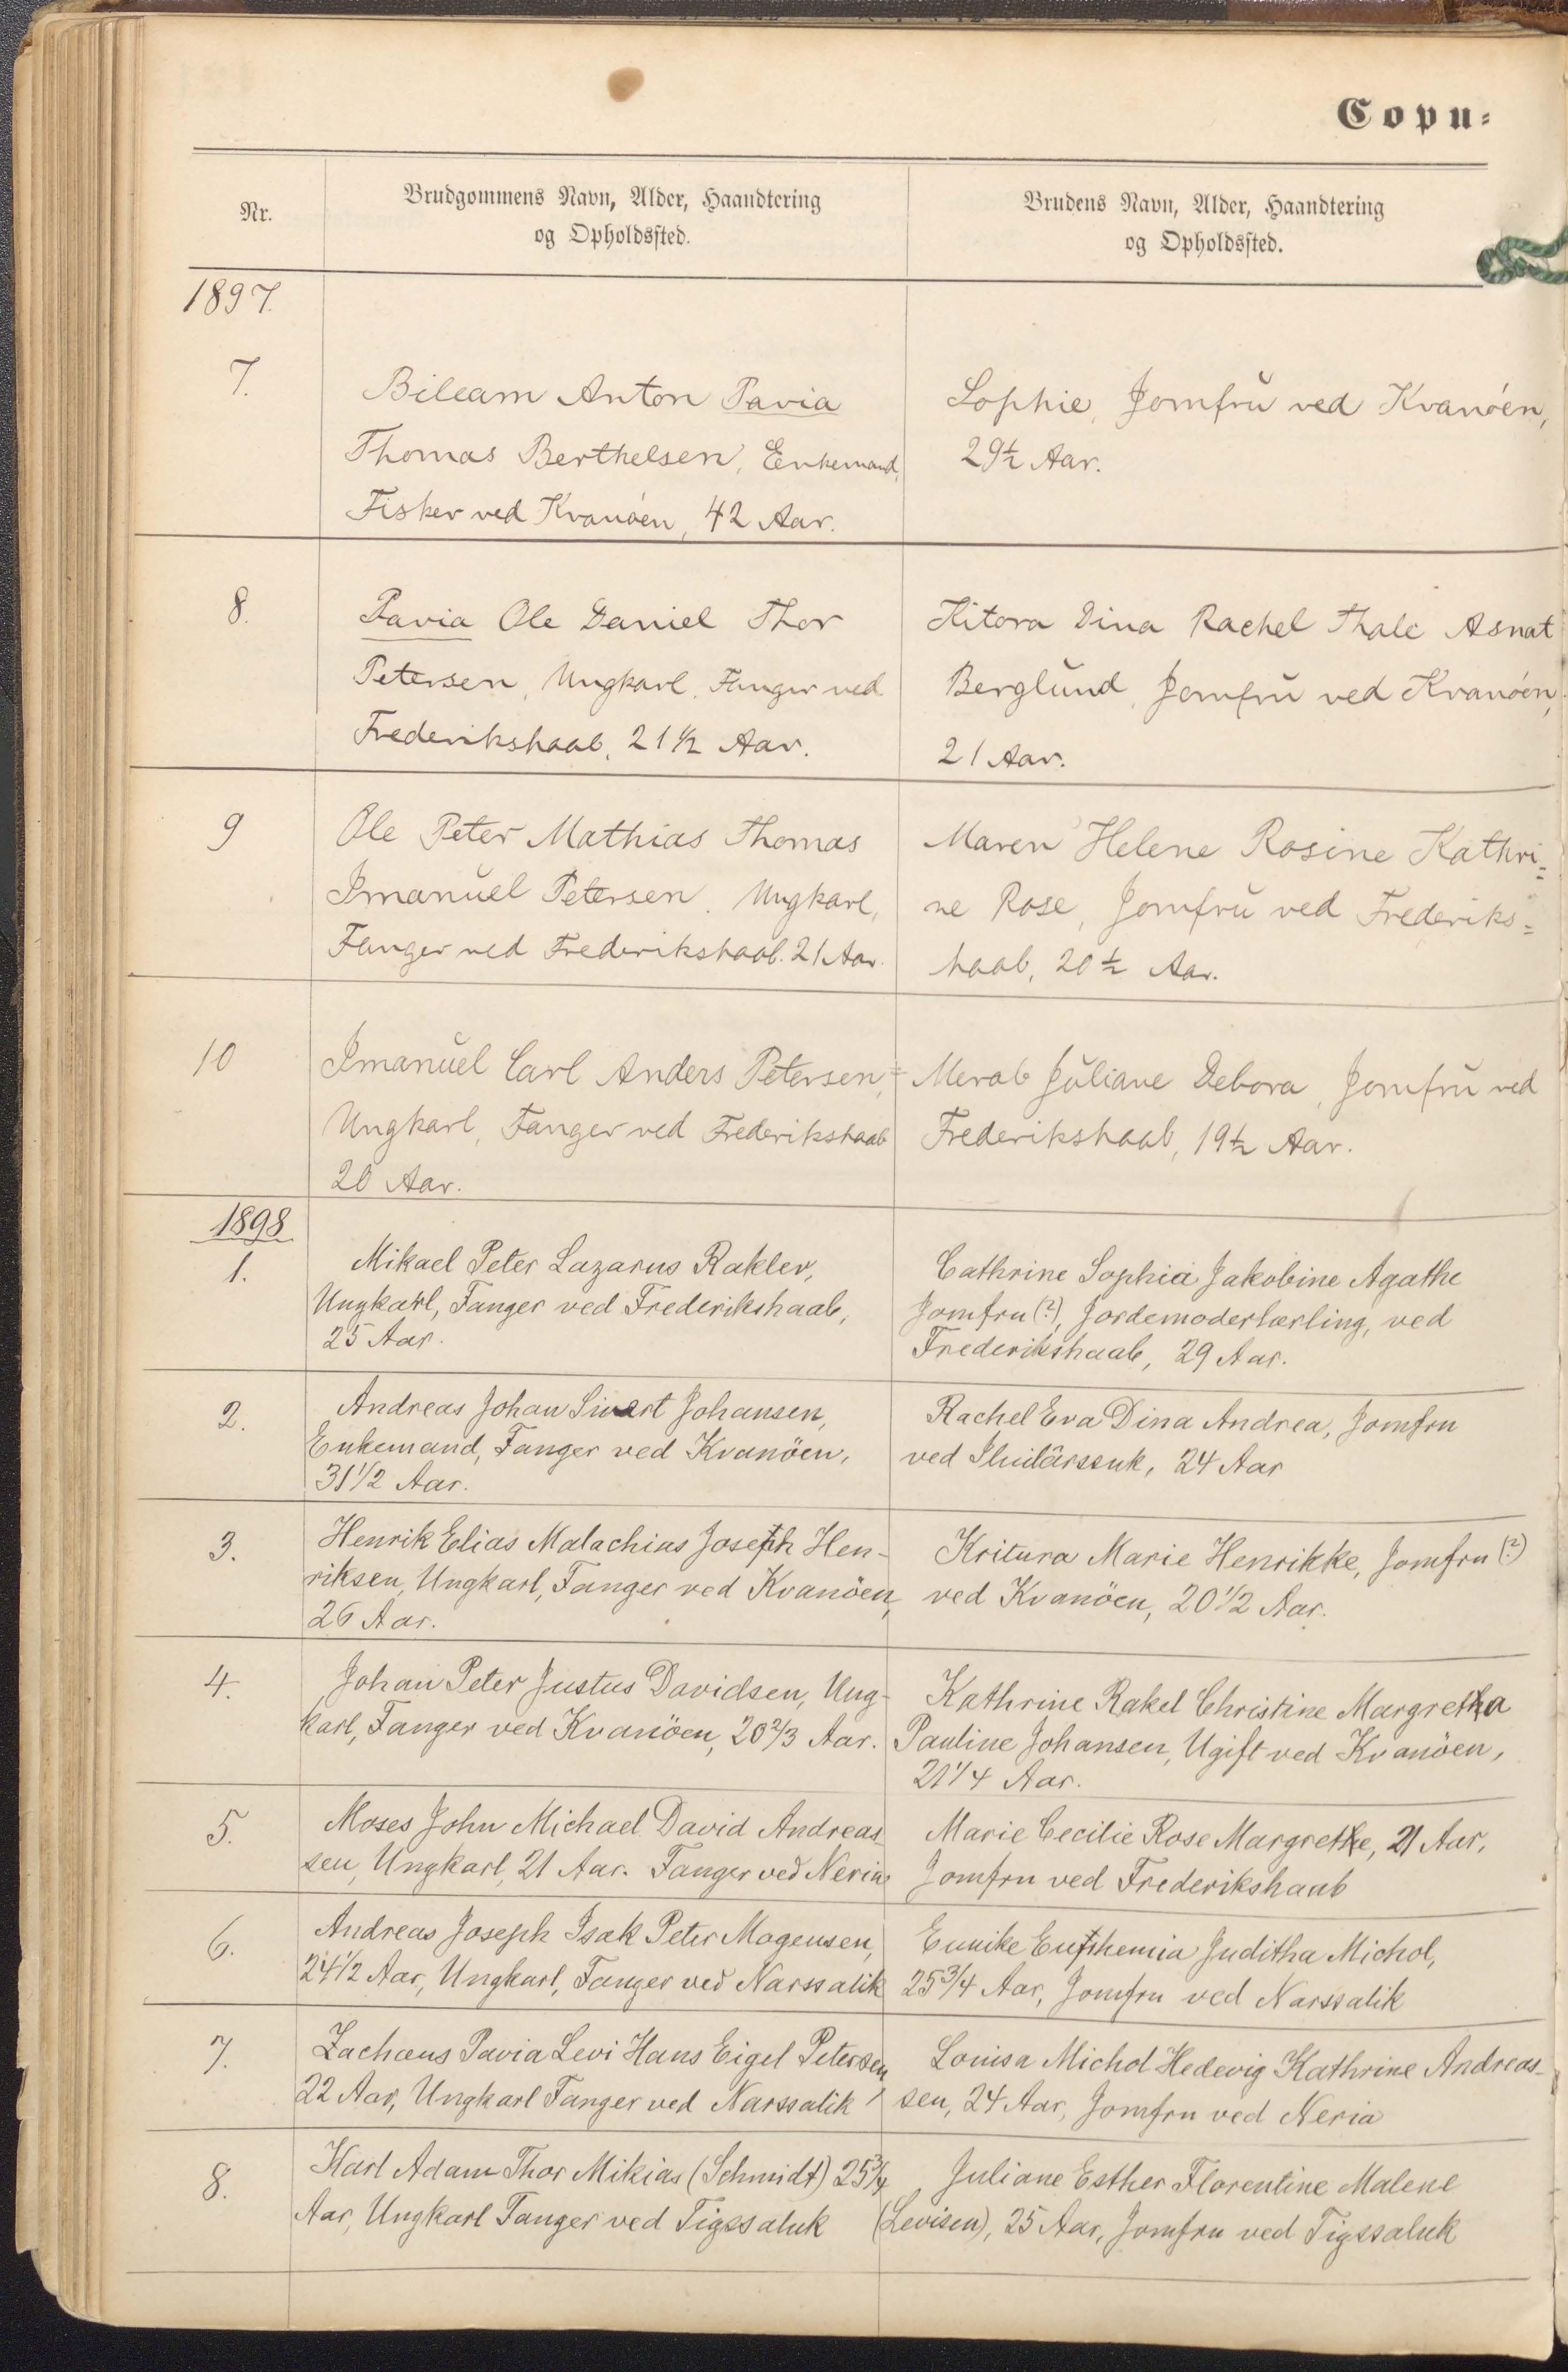 Copu-
Nr.
Brudgommens Navn, Alder, Haandtering
og Opholdssted.
Brudens Navn, Alder, Haandtering
og Opholdssted.
1897.
7.
Bileam Anton Pavia
Thomas Berthelsen, Enkemand,
Fisker ved Kvanöen, 42 Aar.
Sophie, Jomfru ved Kvanöen,
29½ Aar.
8.
Pavia Ole Daniel Thor
Petersen, Ungkarl, Fanger ved
Frederikshaab, 21½ Aar.
Kitora Dina Rachel Thale Asnat
Berglund, Jomfru ved Kvanöen,
21 Aar.
9
Ole Peter Mathias Thomas
Imanuel Petersen. Ungkarl,
Fanger ved Frederikshaab. 21 Aar.
Maren Helene Rosine Kathri=
ne Rose, Jomfru ved Frederiks=
haab, 20½ Aar.
10
Imanuel Carl Anders Petersen,
Ungkarl, Fanger ved Frederikshaab
20 Aar.
Merab Juliane Debora, Jomfru ved
Frederikshaab, 19½ Aar.
1898
1.
Mikael Peter Lazarus Rakler,
Ungkarl, Fanger ved Frederikshaab,
25 Aar.
Cathrine Sophia Jakobine Agathe
Jomfru (?), Jordemoderlærling, ved
Frederikshaab, 29 Aar.
2.
Andreas Johan Sivert Johansen,
Enkemand, Fanger ved Kvanöen,
31½ Aar.
Rachel Eva Dina Andrea, Jomfru
ved 24 Aar
3.
Henrik Elias Malachias Joseph Hen-
riksen, Ungkarl, Fanger ved Kvanöen,
26 Aar.
Kritura Marie Henrikke, Jomfru (?)
ved Kvanöen, 20½ Aar.
4.
Johan Peter Justus Davidsen, Ung-
karl, Fanger ved Kvanöen, 20⅔ Aar.
Kathrine Rakel Christine Margretha
Pauline Johansen, Ugift ved Kvanöen,
21¼ Aar.
5.
Moses John Michael David Andreas-
sen, Ungkarl, 21 Aar. Fanger ved Neria
Marie Cecilie Rose Margrethe, 21 Aar,
Jomfru ved Frederikshaab
6.
Andreas Joseph Isak Peter Mogensen,
24½ Aar, Ungkarl, Fanger ved Narssalik
Eunike Eufphemia Juditha Michol,
25¾ Aar, Jomfru ved Narssalik
7.
Zachæus Pavia Levi Hans Eigel Petersen,
22 Aar, Ungkarl Fanger ved Narssalik
Louisa Michol Hedevig Kathrine Andreas-
sen, 24 Aar, Jomfru ved Neria
8.
Karl Adam Thor Mikias (Schmidt) 25¾
Aar, Ungkarl Fanger ved Tigssaluk
Juliane Esther Florentine Malene
(Levisen), 25 Aar, Jomfru ved Tigssaluk